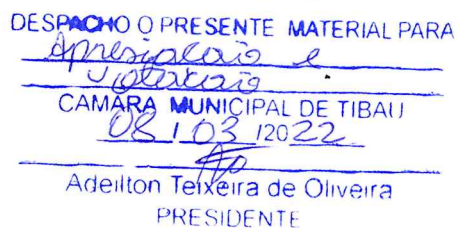 DESPACHO O PRESENTE MATERIAL PARA
Apresiacaio e
Votacaio
CAMARA MUNICIPAL DE TIBAU
08 / 03 /2022
Adeilton Teixeira de Oliveira
PRESIDENTE